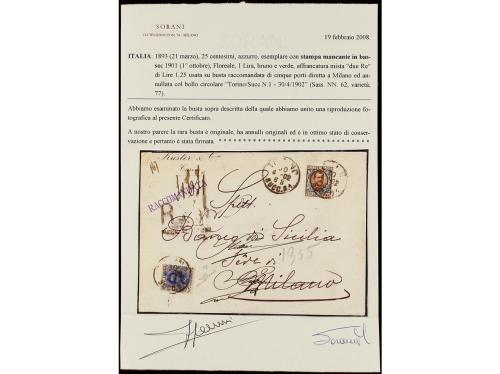 SORANI
VIA WASHINGTON 74 - MILANO
19 febbraio 2008
ITALIA: 1893 (21 marzo), 25 centesimi, azzurro, esemplare con stampa mancante in bas-
so; 1901 (1° ottobre), Floreale, 1 Lira, bruno e verde, affrancatura mista "due Re"
di Lire 1,25 usata su busta raccomandata di cinque porti diretta a Milano ed an-
nullata col bollo circolare "Torino/Succ.N.1 - 30/4/1902" (Sass. NN. 62, varietà,
77).
Abbiamo esaminato la busta sopra descritta della quale abbiamo unito una riproduzione fo-
tografica al presente Certificato.
A nostro parere la rara busta è originale, ha annulli originali ed è in ottimo stato di conser-
vazione e pertanto è stata firmata.
RACCOMANDATA
R
Spett.
Banco di Sicilia
1355
Sede di
Milano